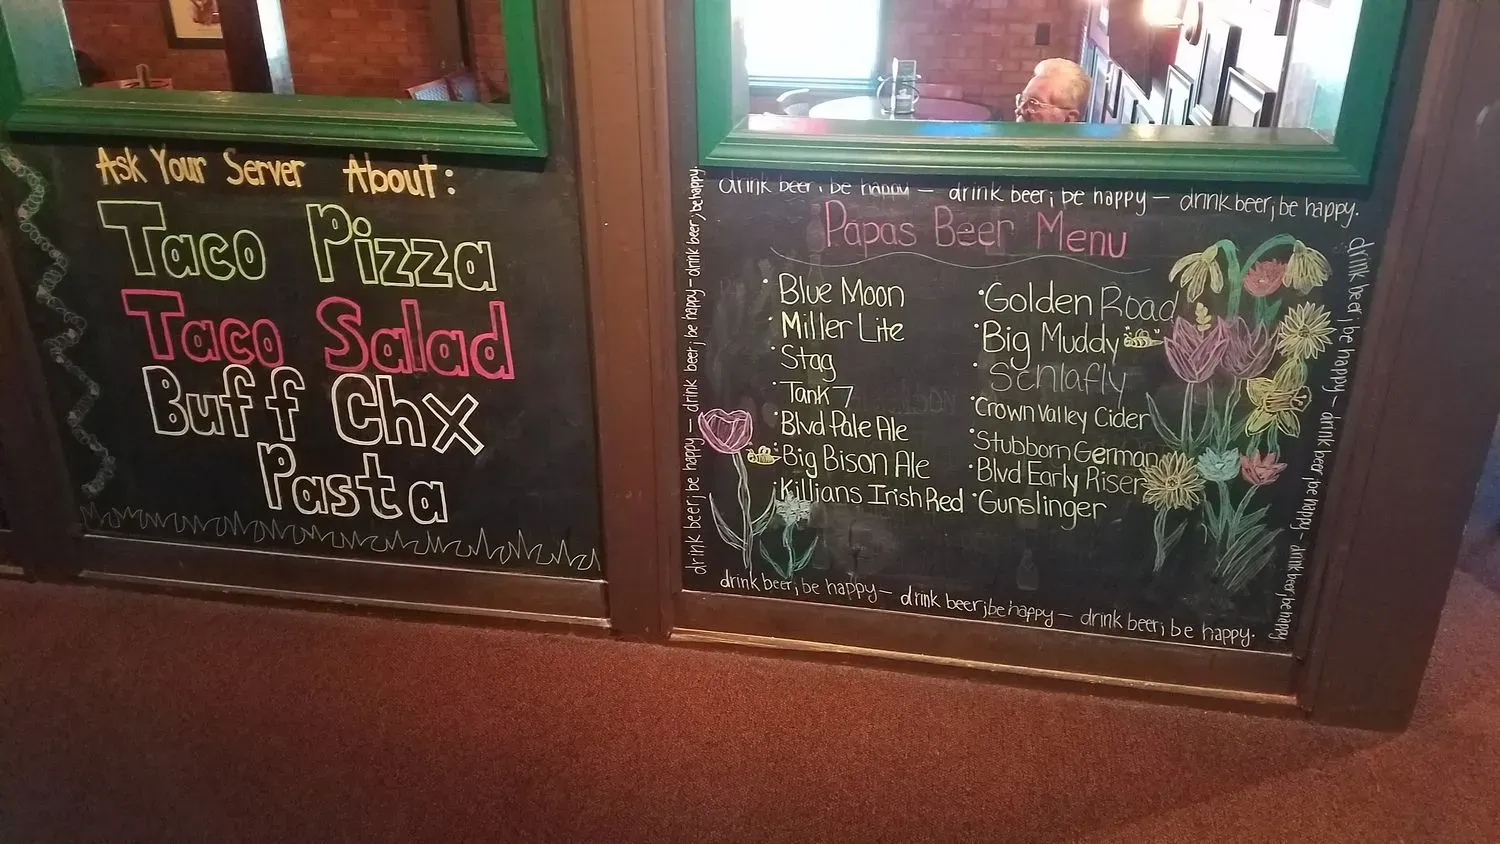 Ask Your Server About:
Taco Pizza
Taco Salad
Buff Chx
Pasta
drink beer; be happy — drink beer; be happy — drink beer; be happy.
Papas Beer Menu
• Blue Moon
• Miller Lite
• Stag
• Tank 7
• Blvd Pale Ale
• Big Bison Ale
• Killians Irish Red
• Golden Road
• Big Muddy
• Schlafly
• Crown Valley Cider
• Stubborn German
• Blvd Early Riser
• Gunslinger
drink beer; be happy — drink beer; be happy — drink beer; be happy — drink beer; be happy
drink beer; be happy — drink beer; be happy — drink beer; be happy
drink beer; be happy — drink beer; be happy — drink beer; be happy.